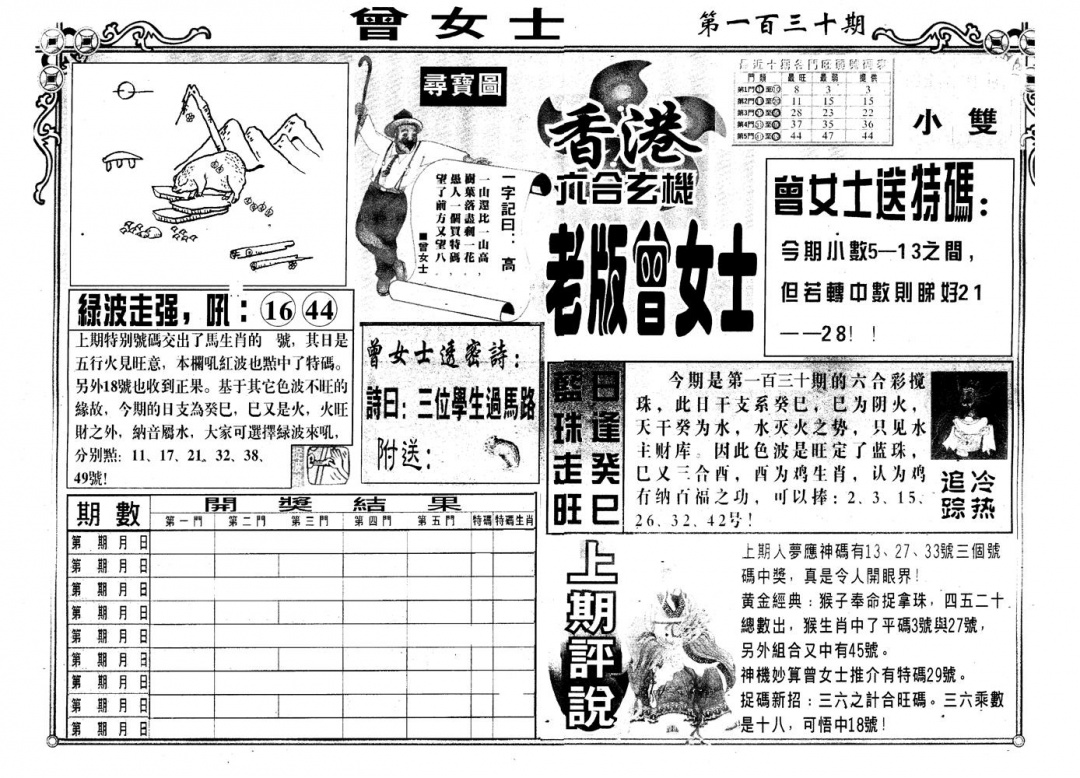 曾女士
第一百三十期
尋寶圖
一字記曰：高
一山還比一山高，
樹葉落盡剩一花，
愚人一個買特碼，
望了前方又望八。
■曾女士
香港
六合玄機
老版曾女士
最近十期各門旺弱號碼表
門類 最旺 最弱 提供
第1門 至 8 3 3
第2門 至 11 15 15
第3門 至 28 23 22
第4門 至 37 35 36
第5門 至 44 47 44
小雙
曾女士送特碼：
今期小數5—13之間，
但若轉中數則睇好21
——28！！
綠波走强，吼：16 44
上期特别號碼交出了馬生肖的 號，其日是
五行火見旺意，本欄吼紅波也點中了特碼。
另外18號也收到正果。基于其它色波不旺的
緣故，今期的日支為癸巳，巳又是火，火旺
財之外，納音屬水，大家可選擇緑波來吼，
分别點：11、17、21、32、38、
49號！
曾女士透密詩：
詩曰：三位學生過馬路
附送：
日逢癸巳
藍珠走旺
今期是第一百三十期的六合彩搅
珠，此日干支系癸巳，巳为阴火，
天干癸为水，水灭火之势，只见水
主财库。因此色波是旺定了蓝珠，
巳又三合酉，酉为鸡生肖，认为鸡
有纳百福之功，可以捧：2、3、15、
26、32、42号！
冷热
追踪
期數 開獎結果
第一門 第二門 第三門 第四門 第五門 特碼 特碼生肖
第 期 月 日
第 期 月 日
第 期 月 日
第 期 月 日
第 期 月 日
第 期 月 日
第 期 月 日
第 期 月 日
第 期 月 日
上期評說
上期人夢應神碼有13、27、33號三個號
碼中獎，真是令人開眼界！
黄金經典：猴子奉命捉拿珠，四五二十
總數出，猴生肖中了平碼3號與27號，
另外組合又中有45號。
神機妙算曾女士推介有特碼29號。
捉碼新招：三六之計合旺碼。三六乘數
是十八，可悟中18號！